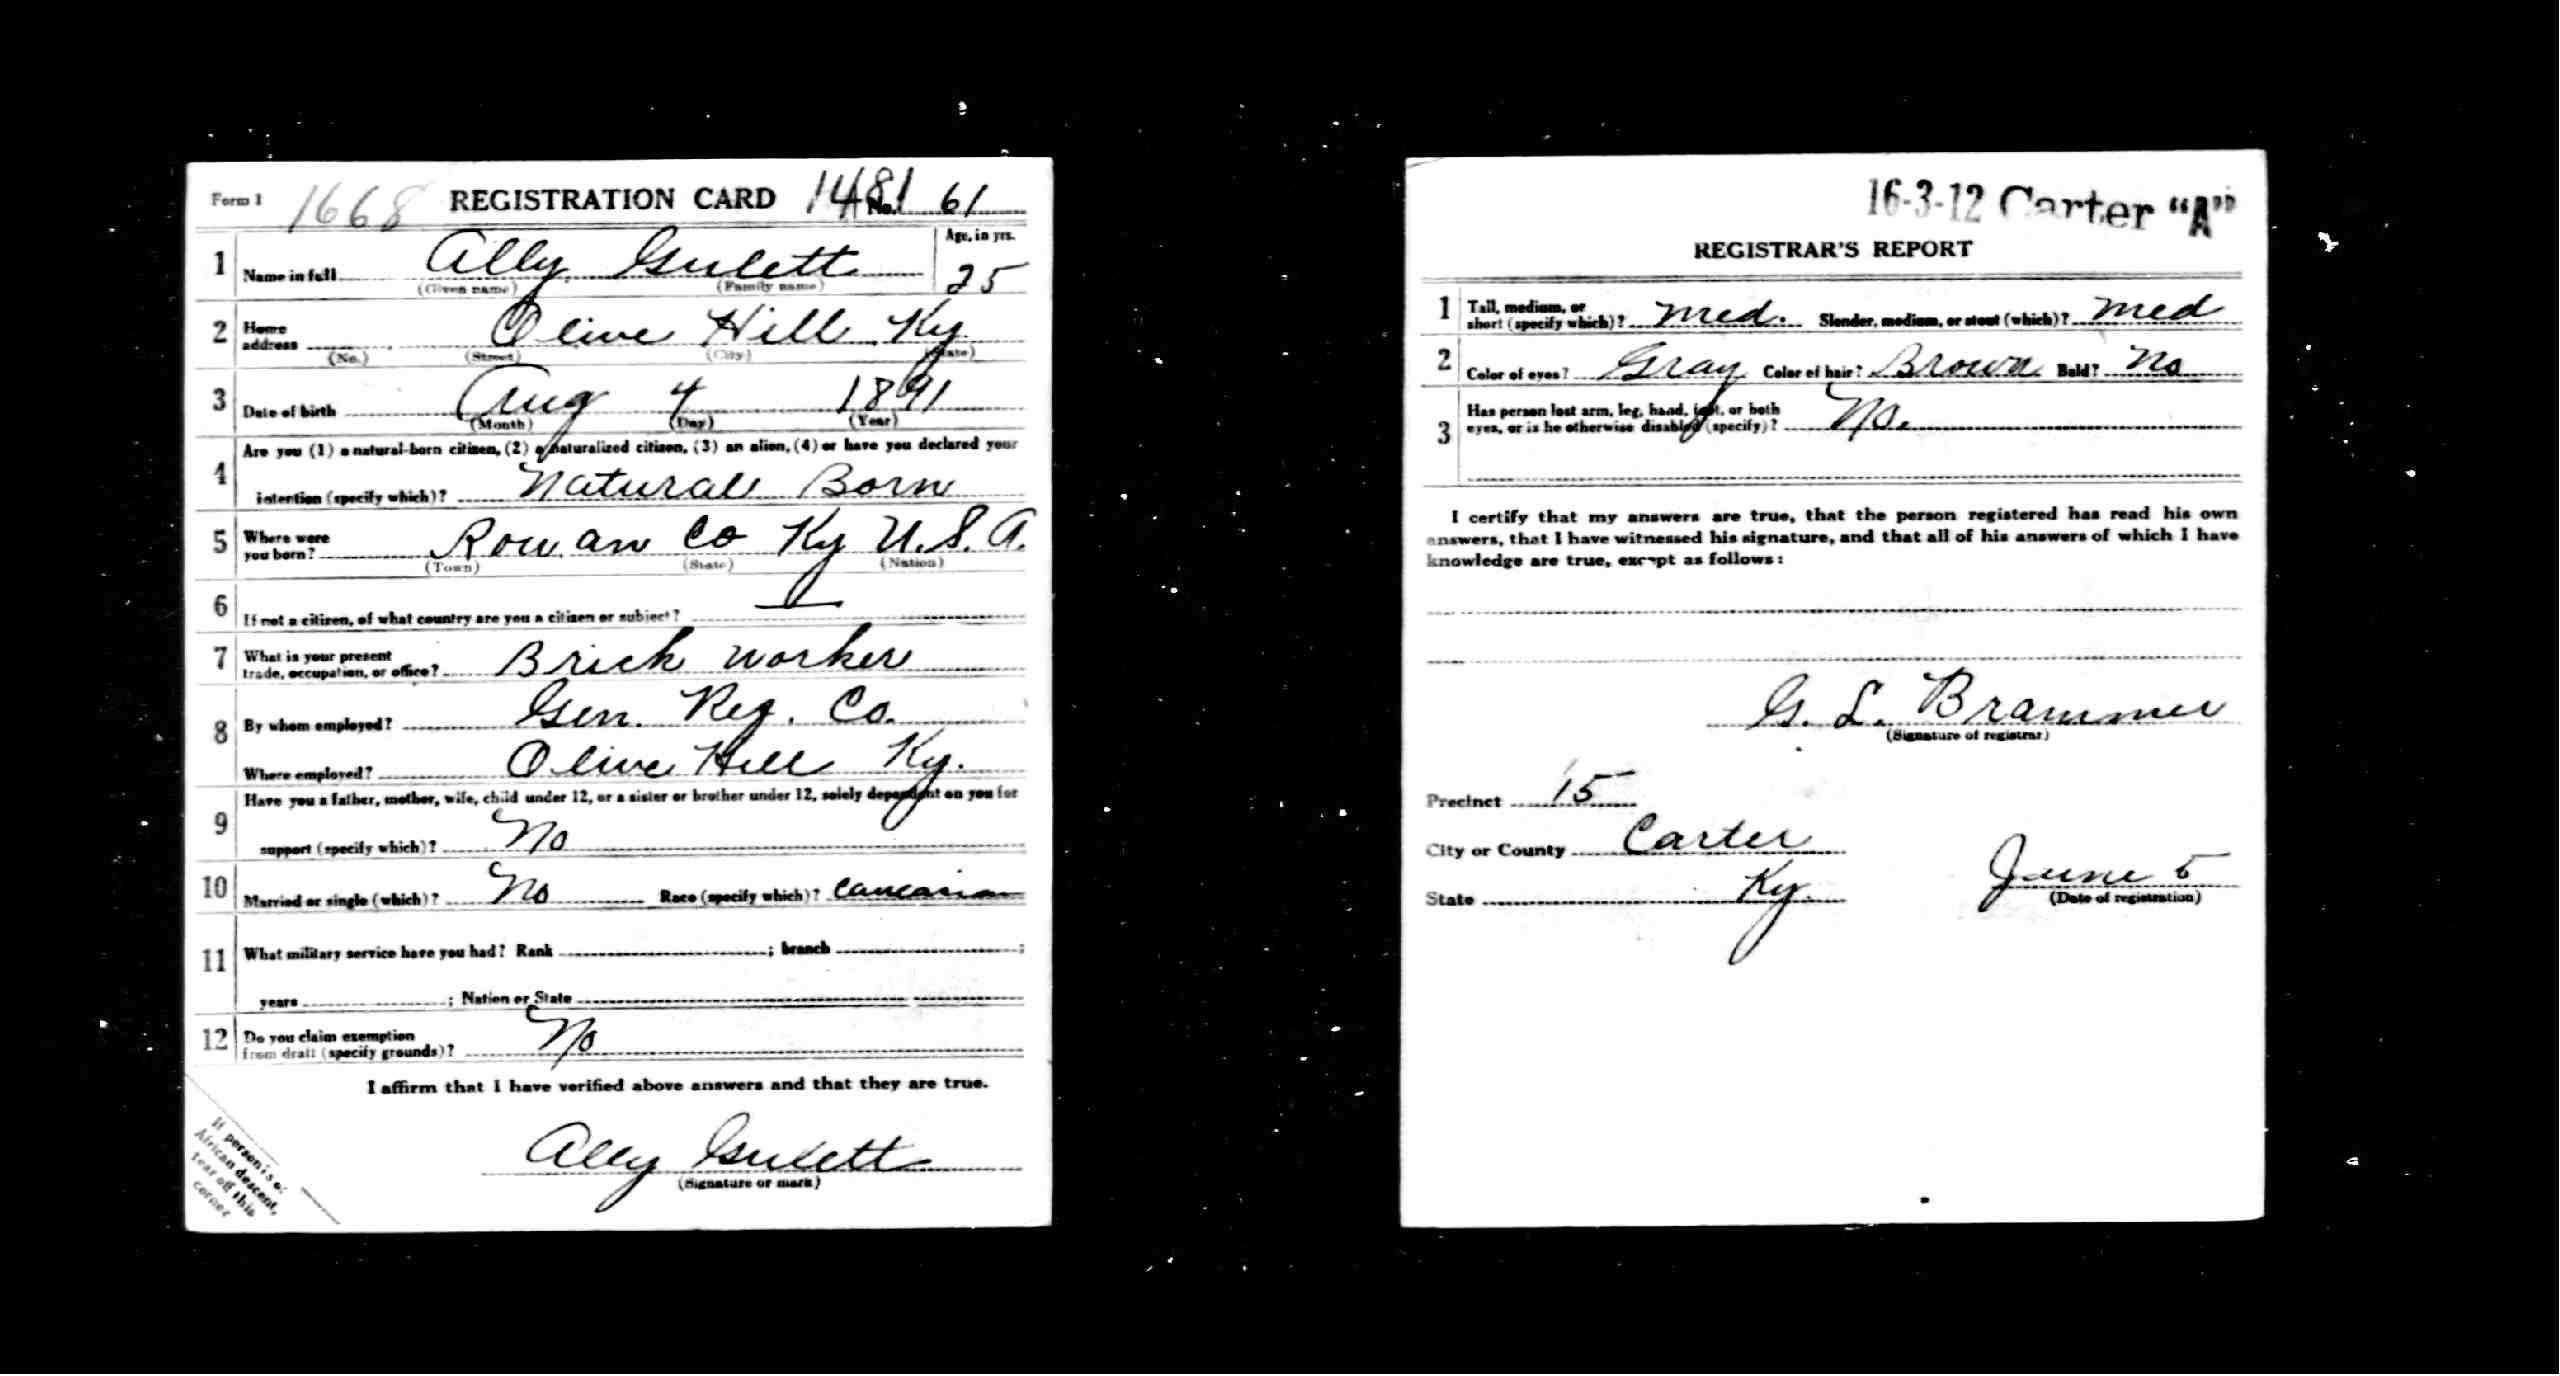 Form 1 1668 REGISTRATION CARD 1481 No. 61
1 Name in full Ally Gulett Age, in yrs.
(Given name) (Family name) 25
2 Home address Olive Hill Ky
(No.) (Street) (City) (State)
3 Date of birth Aug 4 1891
(Month) (Day) (Year)
4 Are you (1) a natural-born citizen, (2) a naturalized citizen, (3) an alien, (4) or have you declared your
intention (specify which)? Natural Born
5 Where were
you born? Rowan Co Ky U.S.A.
(Town) (State) (Nation)
6 If not a citizen, of what country are you a citizen or subject? —
7 What is your present
trade, occupation, or office? Brick worker
8 By whom employed? Gen. Reg. Co.
Where employed? Olive Hill Ky.
9 Have you a father, mother, wife, child under 12, or a sister or brother under 12, solely dependent on you for
support (specify which)? No
10 Married or single (which)? No Race (specify which)? Caucasian
11 What military service have you had? Rank ; branch ;
years ; Nation or State
12 Do you claim exemption
from draft (specify grounds)? No
I affirm that I have verified above answers and that they are true.
Ally Gulett
(Signature or mark)
If person is of
African descent,
tear off this
corner
16-3-12 Carter "A"
REGISTRAR'S REPORT
1 Tall, medium, or
short (specify which)? Med. Slender, medium, or stout (which)? Med
2 Color of eyes? Gray Color of hair? Brown Bald? No
3 Has person lost arm, leg, hand, foot, or both
eyes, or is he otherwise disabled (specify)? No.
I certify that my answers are true, that the person registered has read his own
answers, that I have witnessed his signature, and that all of his answers of which I have
knowledge are true, except as follows:
G. L. Brammer
(Signature of registrar)
Precinct 15
City or County Carter
State Ky. June 5
(Date of registration)